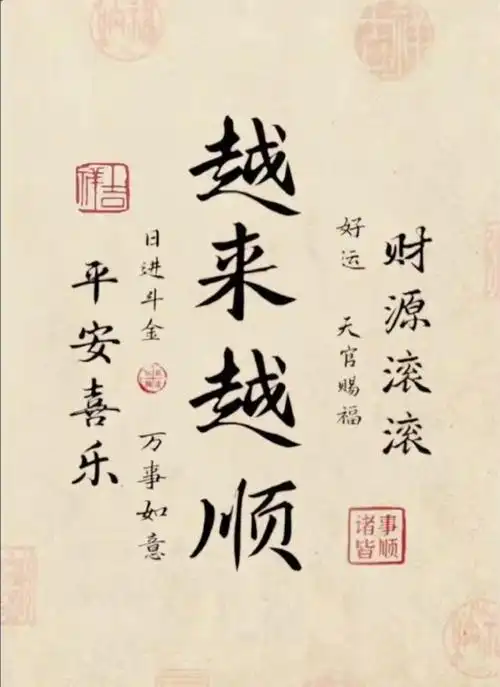 财源滚滚
好运 天官赐福
越来越顺
日进斗金 万事如意
平安喜乐
吉祥
诸事皆顺